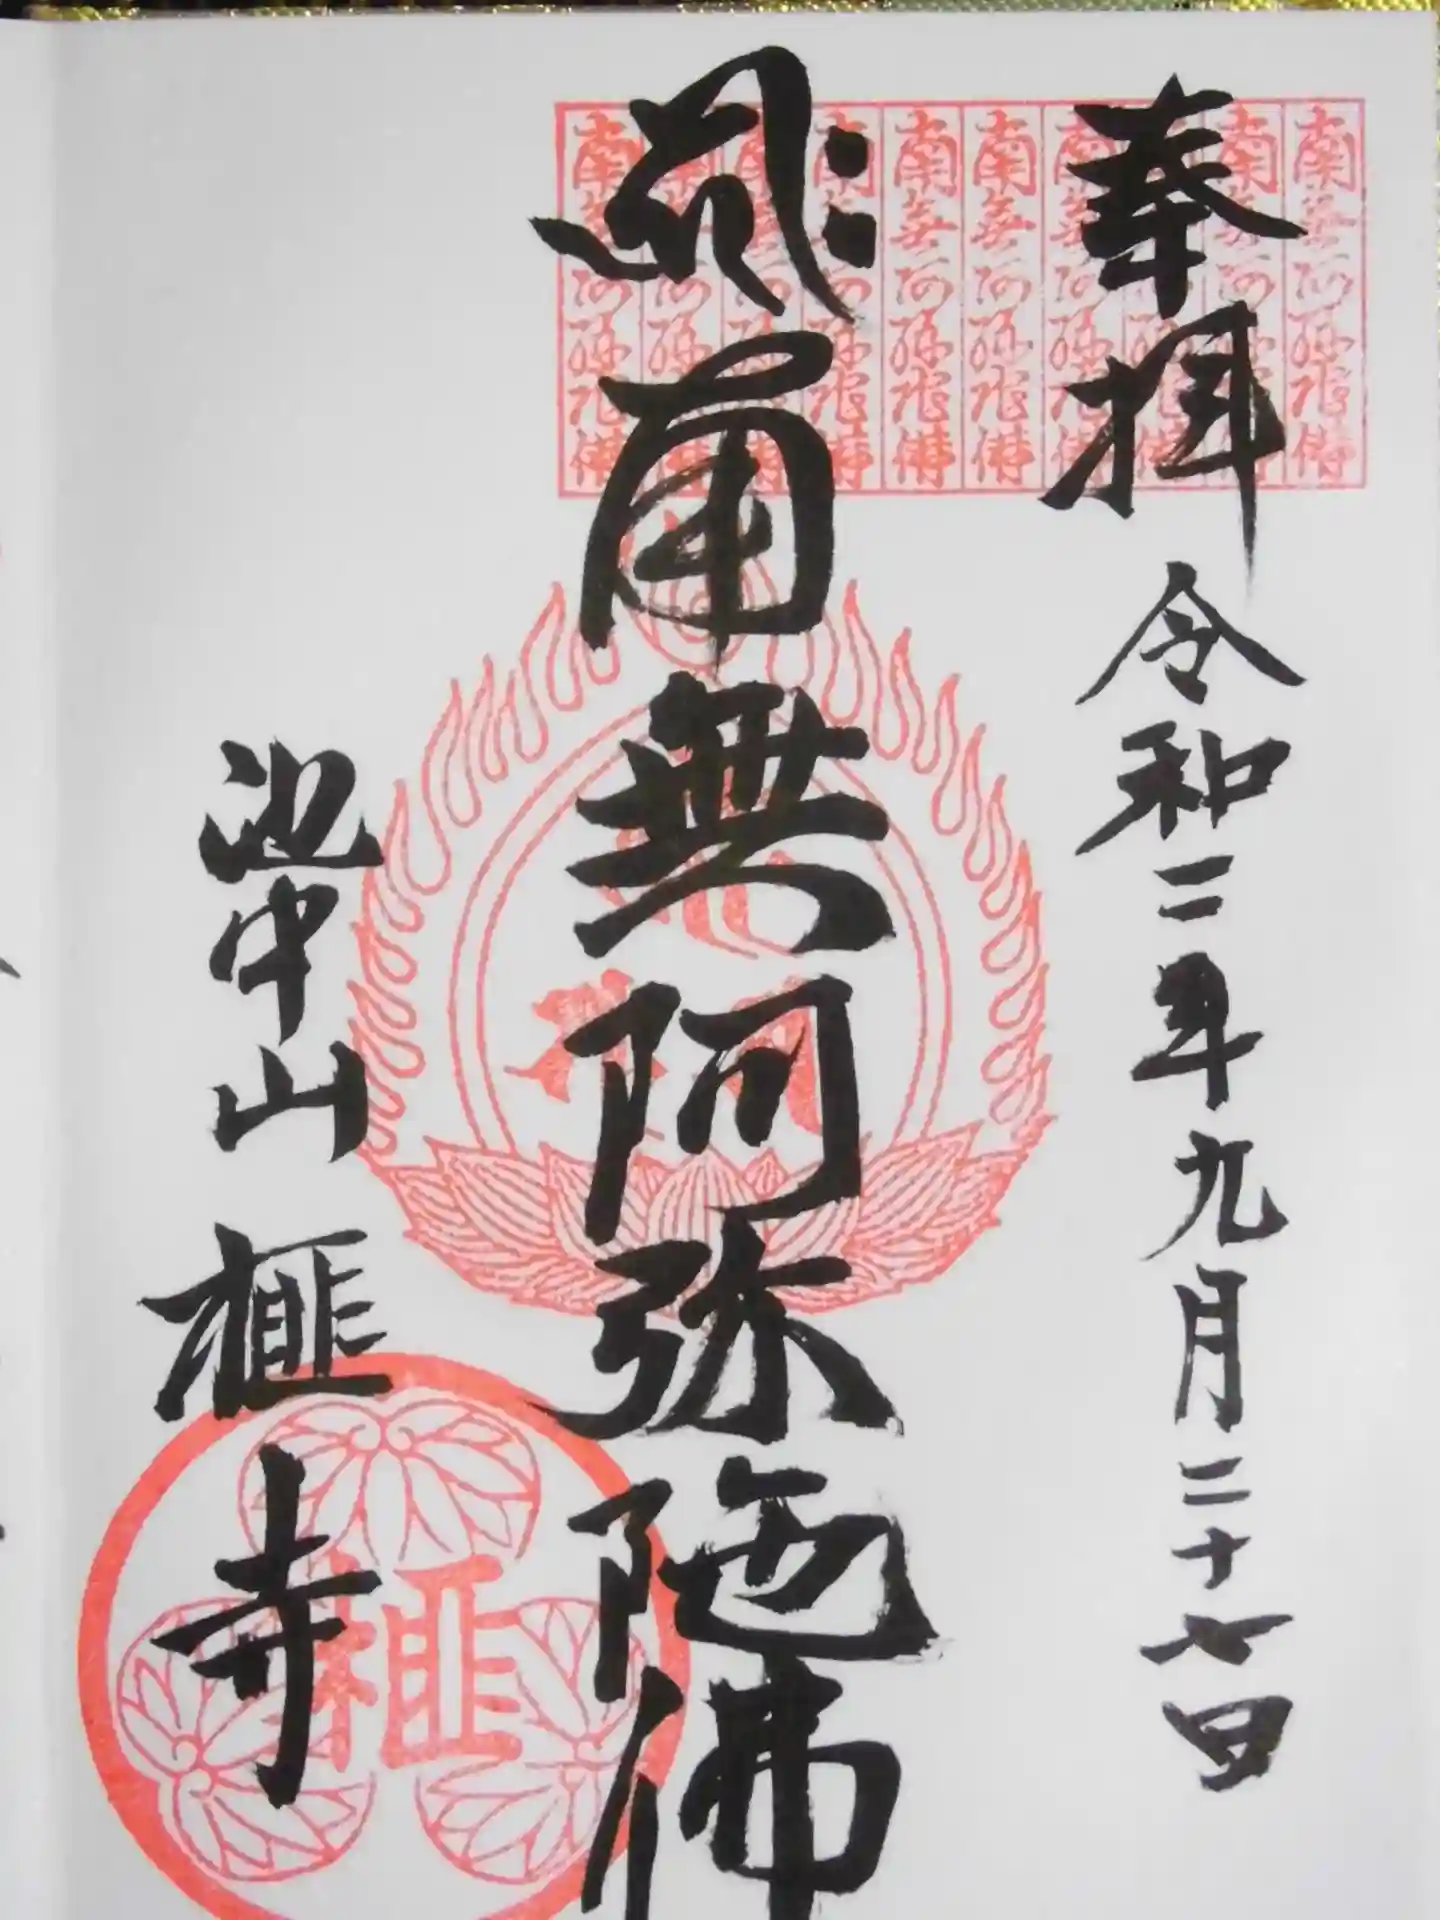 奉拝
令和二年九月二十七日
南無阿弥陀佛
池中山
榧寺
南無阿弥陀佛
南無阿弥陀佛
南無阿弥陀佛
南無阿弥陀佛
南無阿弥陀佛
南無阿弥陀佛
南無阿弥陀佛
南無阿弥陀佛
南無阿弥陀佛
南無阿弥陀佛
榧